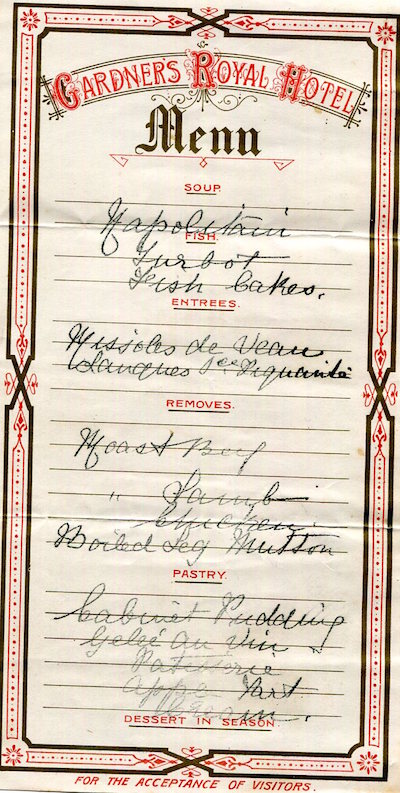 GARDNERS ROYAL HOTEL
Menu
SOUP.
Napolitain
FISH.
Turbot
Fish Cakes.
ENTREES.
Rissoles de Veau
Langues Sce Piquante
REMOVES.
Roast Beef
" Lamb
Chicken
Boiled Leg Mutton
PASTRY.
Cabinet Pudding
Gelée au Vin
Patisserie
Apple Tart
DESSERT IN SEASON.
FOR THE ACCEPTANCE OF VISITORS.